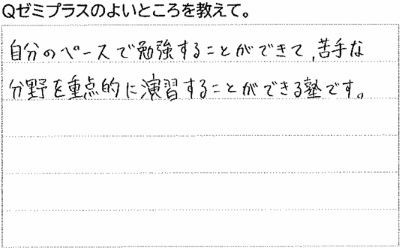 Qゼミプラスのよいところを教えて。
自分のペースで勉強することができて、苦手な
分野を重点的に演習することができる塾です。